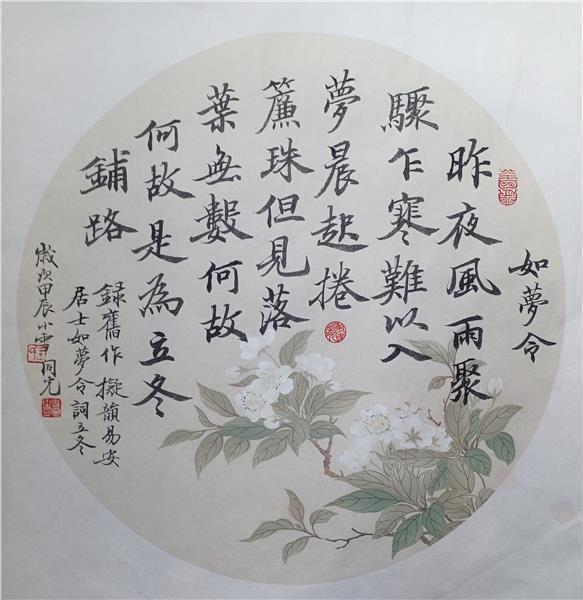 如夢令
昨夜風雨聚
驟乍寒難以入
夢晨起捲
簾珠但見落
葉無數何故
何故是為立冬
鋪路
錄舊作擬韻易安
居士如夢令詞立冬
歲次甲辰小雪